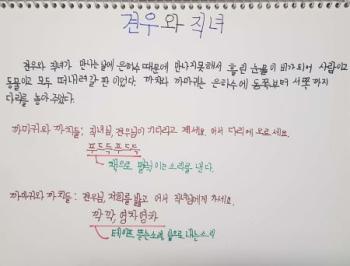 견우와 직녀
견우와 직녀가 만나는날에 은하수 때문에 만나지못해서 흘린 눈물이 비가되어 사람이고
동물이고 모두 떠내려갈 판 이었다. 까치와 까마귀는 은하수에 동쪽부터 서쪽 까지
다리를 놓아주었다.
까마귀와 까치들: 직녀님, 견우님이 기다리고 계세요. 어서 다리에 오르세요.
푸드득푸드득
책으로 펄럭이는소리를 낸다.
까마귀와 까치들: 견우님, 저희를 밟고 어서 직녀님에게 가세요.
깍깍, 영차영차
테이프 뜯는소리, 입으로 내는소리